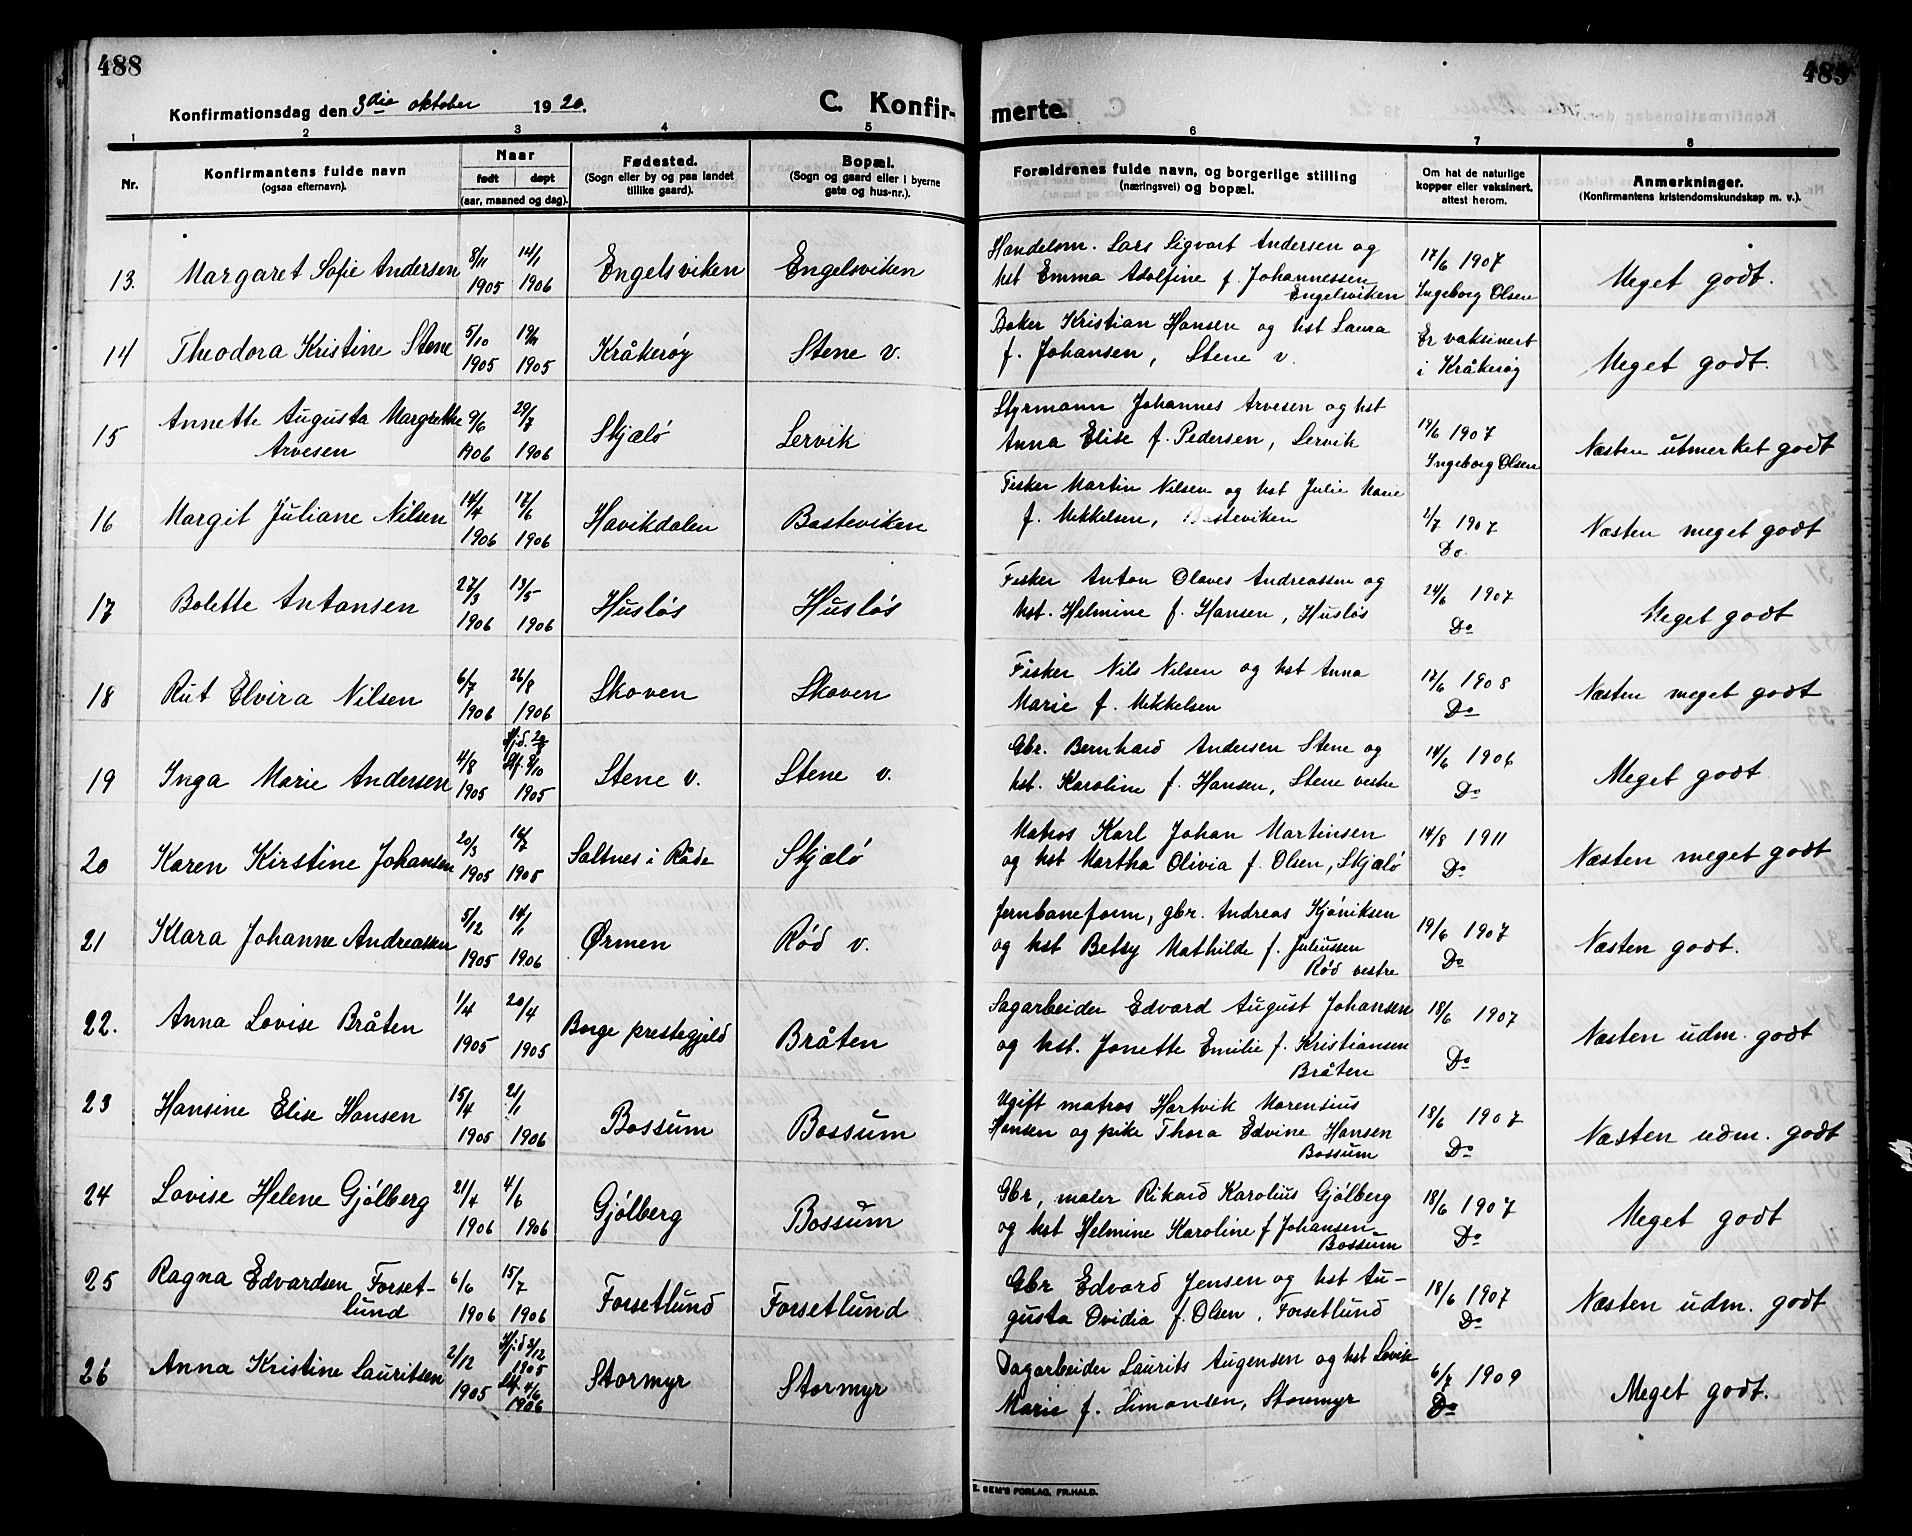 488
489
Konfirmationsdag den 3die oktober 1920.
C. Konfir-
merte.
1 2 3 4 5 6 7 8
Nr.
Konfirmantens fulde navn
(ogsaa efternavn).
Naar
født døpt
(aar, maaned og dag).
Fødested.
(Sogn eller by og paa landet
tillike gaard).
Bopæl.
(Sogn og gaard eller i byerne
gate og hus-nr.).
Forældrenes fulde navn, og borgerlige stilling
(næringsvei) og bopæl.
Om hat de naturlige
kopper eller vaksinert,
attest herom.
Anmerkninger.
(Konfirmantens kristendomskundskap m. v.).
13. Margaret Sofie Andersen 8/11 1905 14/1 1906 Engelsviken Engelsviken
Handelsm. Lars Sigvart Andersen og
hst Emma Adolfine f. Johannessen
Engelsviken
17/6 1907
Ingeborg Olsen
Meget godt.
14 Theodora Kristine Stene 5/10 1905 1905 Kråkerøy Stene v.
Baker Kristian Hansen og hst Laura
f. Johansen, Stene v.
Er vaksinert
i Kråkerøy
Meget godt.
15 Annette Augusta Margrethe
Arvesen
9/6 1906 29/7 1906 Skjælø Lervik
Styrmann Johannes Arvesen og hst
Anna Elise f. Pedersen, Lervik
19/6 1907
Ingeborg Olsen
Næsten utmerket godt
16 Margit Juliane Nilsen 14/4 1906 17/6 1906 Havikdalen Basteviken
Fisker Martin Nilsen og hst Julie Marie
f. Mikkelsen, Basteviken
2/7 1907
Do.
Næsten meget godt
17 Bolette Antonsen 27/3 1906 13/5 1906 Husløs Husløs
Fisker Anton Olaves Andreassen og
hst. Helmine f. Hansen, Husløs
24/6 1907
Do
Meget godt
18 Rut Elvira Nilsen 6/7 1906 26/8 1906 Skoven Skoven
Fisker Nils Nilsen og hst Anna
Marie f. Mikkelsen
17/6 1908
Do
Næsten meget godt
19 Inga Marie Andersen 4/8 1905 Hj.d. Stf. 8/10 1905 Stene v. Stene v.
Gbr. Bernhard Andersen Stene og
hst. Karoline f. Hansen, Stene vestre
14/6 1906
Do
Meget godt
20 Karen Kirstine Johansen 20/3 1905 16/7 1905 Saltnes i Råde Skjælø
Matros Karl Johan Martinsen
og hst Martha Olivia f. Olsen, Skjælø
14/8 1911
Do
Næsten meget godt
21 Klara Johanne Andreassen 5/12 1905 14/1 1906 Ørmen Rød v.
Jernbaneform, gbr. Andreas Kjøniksen
og hst Betsy Mathilde f. Juliussen
Rød vestre
19/6 1907
Do
Næsten godt.
22. Anna Lovise Bråten 1/4 1905 20/4 1905 Borge prestegjeld Bråten
Sagarbeider Edvard August Johansen
og hst. Jonette Emilie f. Kristiansen
Bråten
18/6 1907
Do
Næsten udm. godt
23 Hansine Elise Hansen 15/4 1905 21/1 1906 Bossum Bossum
Ugift matros Hartvik Marensius
Hansen og pike Thora Edvine Hansen
Bossum
18/6 1907
Do
Næsten udm. godt
24 Lovise Helene Gjølberg 21/4 1906 4/6 1906 Gjølberg Bossum
Gbr, maler Rikard Karolius Gjølberg
og hst Helmine Karoline f Johansen
Bossum
18/6 1907
Do
Meget godt
25 Ragna Edvardsen Forset-
lund
6/6 1906 15/7 1906 Forsetlund Forsetlund
Gbr Edvard Jensen og hst Au-
gusta Ovidia f. Olsen, Forsetlund
18/6 1907
Do
Næsten udm. godt
26 Anna Kristine Lauritsen 2/12 1905 Hj.d 3/12 1905 Stf. 4/6 1906 Stormyr Stormyr
Dagarbeider Laurits Augensen og hst Lovise
Marie f. Simonsen, Stormyr
6/7 1909
Do
Meget godt.
E. SEM'S FORLAG, FR.HALD.